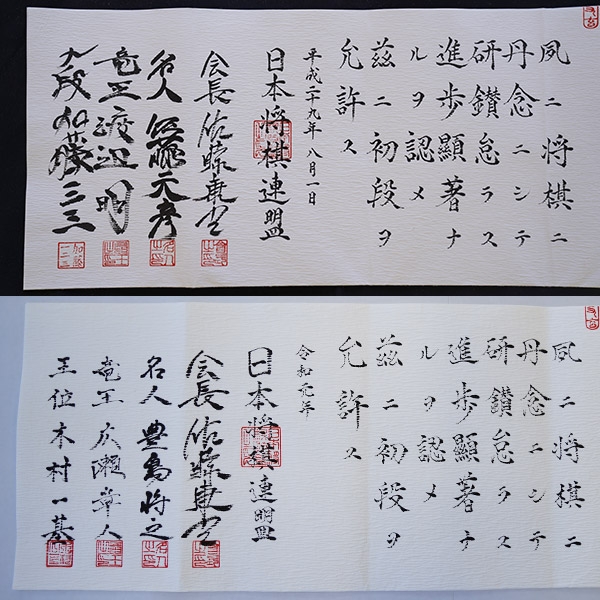 夙ニ将棋ニ
丹念ニシテ
研鑽怠ラス
進歩顯著ナ
ルヲ認メ
茲ニ初段ヲ
允許ス
平成二十九年八月一日
日本将棋連盟
会長佐藤康光
名人佐藤天彦
竜王渡辺明
九段加藤一二三
夙ニ将棋ニ
丹念ニシテ
研鑽怠ラス
進歩顯著ナ
ルヲ認メ
茲ニ初段ヲ
允許ス
令和元年
日本将棋連盟
会長佐藤康光
名人豊島将之
竜王広瀬章人
王位木村一基